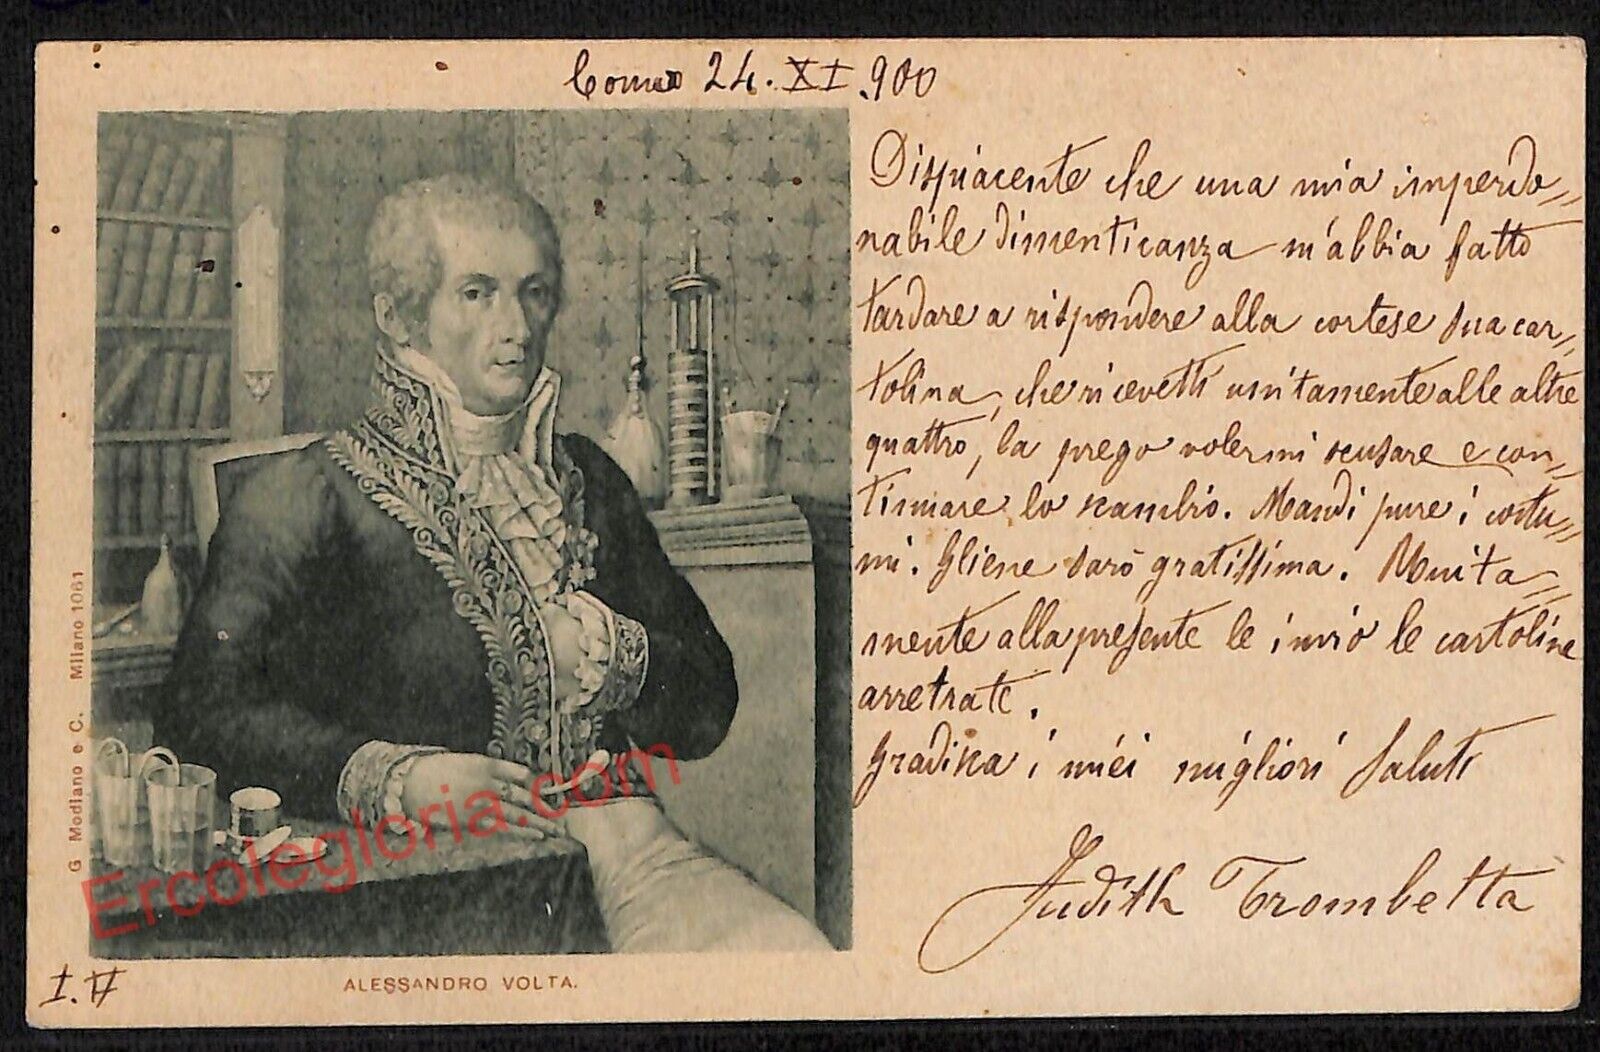 Como 24. XI. 900
Dispiacente che una mia imperdo=
nabile dimenticanza m'abbia fatto
tardare a rispondere alla cortese sua car=
tolina, che ricevetti unitamente alle altre
quattro, la prego volermi scusare e con=
tinuare lo scambio. Mandi pure i costu=
mi. Gliene sarò gratissima. Unita=
mente alla presente le invio le cartoline
arretrate.
Gradisca i miei migliori saluti
Judith Trombetta
G. Modiano e C. Milano 1061
ALESSANDRO VOLTA.
Ercolegloria.com